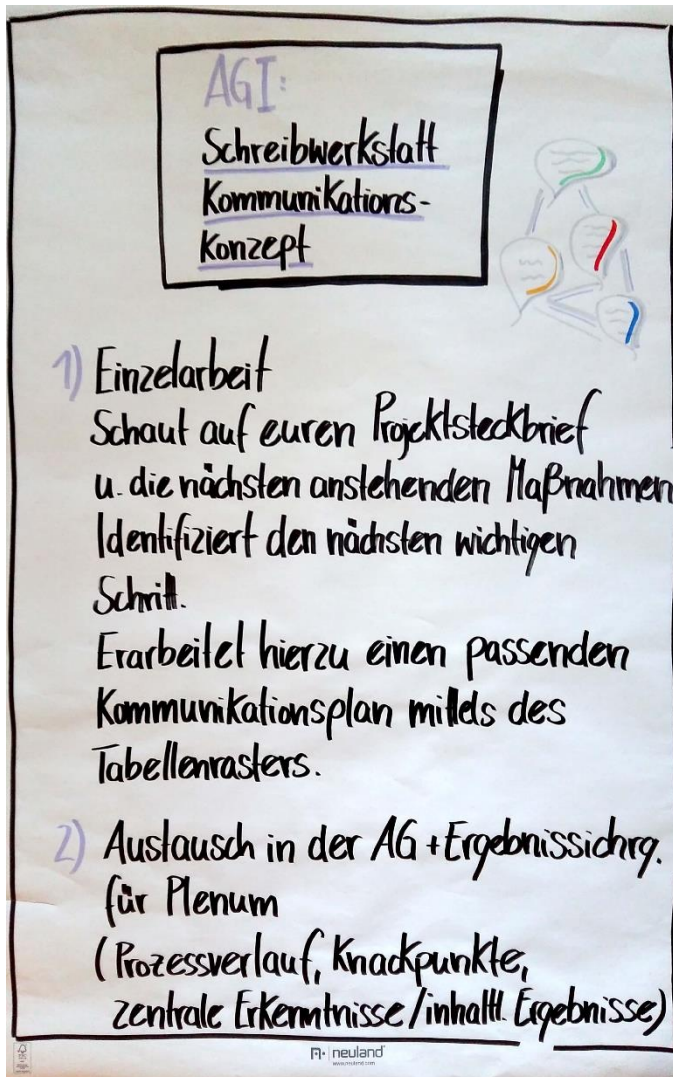 AGI:
Schreibwerkstatt
Kommunikations-
Konzept
1) Einzelarbeit
Schaut auf euren Projektsteckbrief
u. die nächsten anstehenden Maßnahmen
Identifiziert den nächsten wichtigen
Schritt.
Erarbeitet hierzu einen passenden
Kommunikationsplan mittels des
Tabellenrasters.
2) Austausch in der AG + Ergebnissichrg.
für Plenum
(Prozessverlauf, Knackpunkte,
zentrale Erkenntnisse/inhaltl. Ergebnisse)
neuland
www.neuland.com